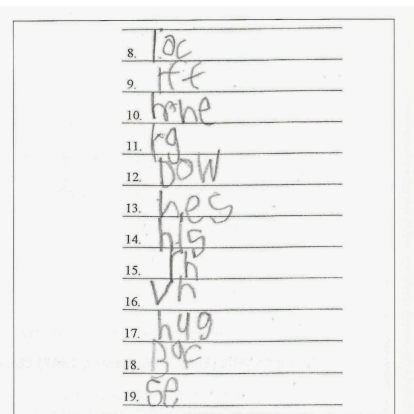 8. loc
9. rff
10. hrhe
11. rg
12. Dow
13. hes
14. hls
15. rh
16. Vh
17. hyg
18. Bqf
19. Se